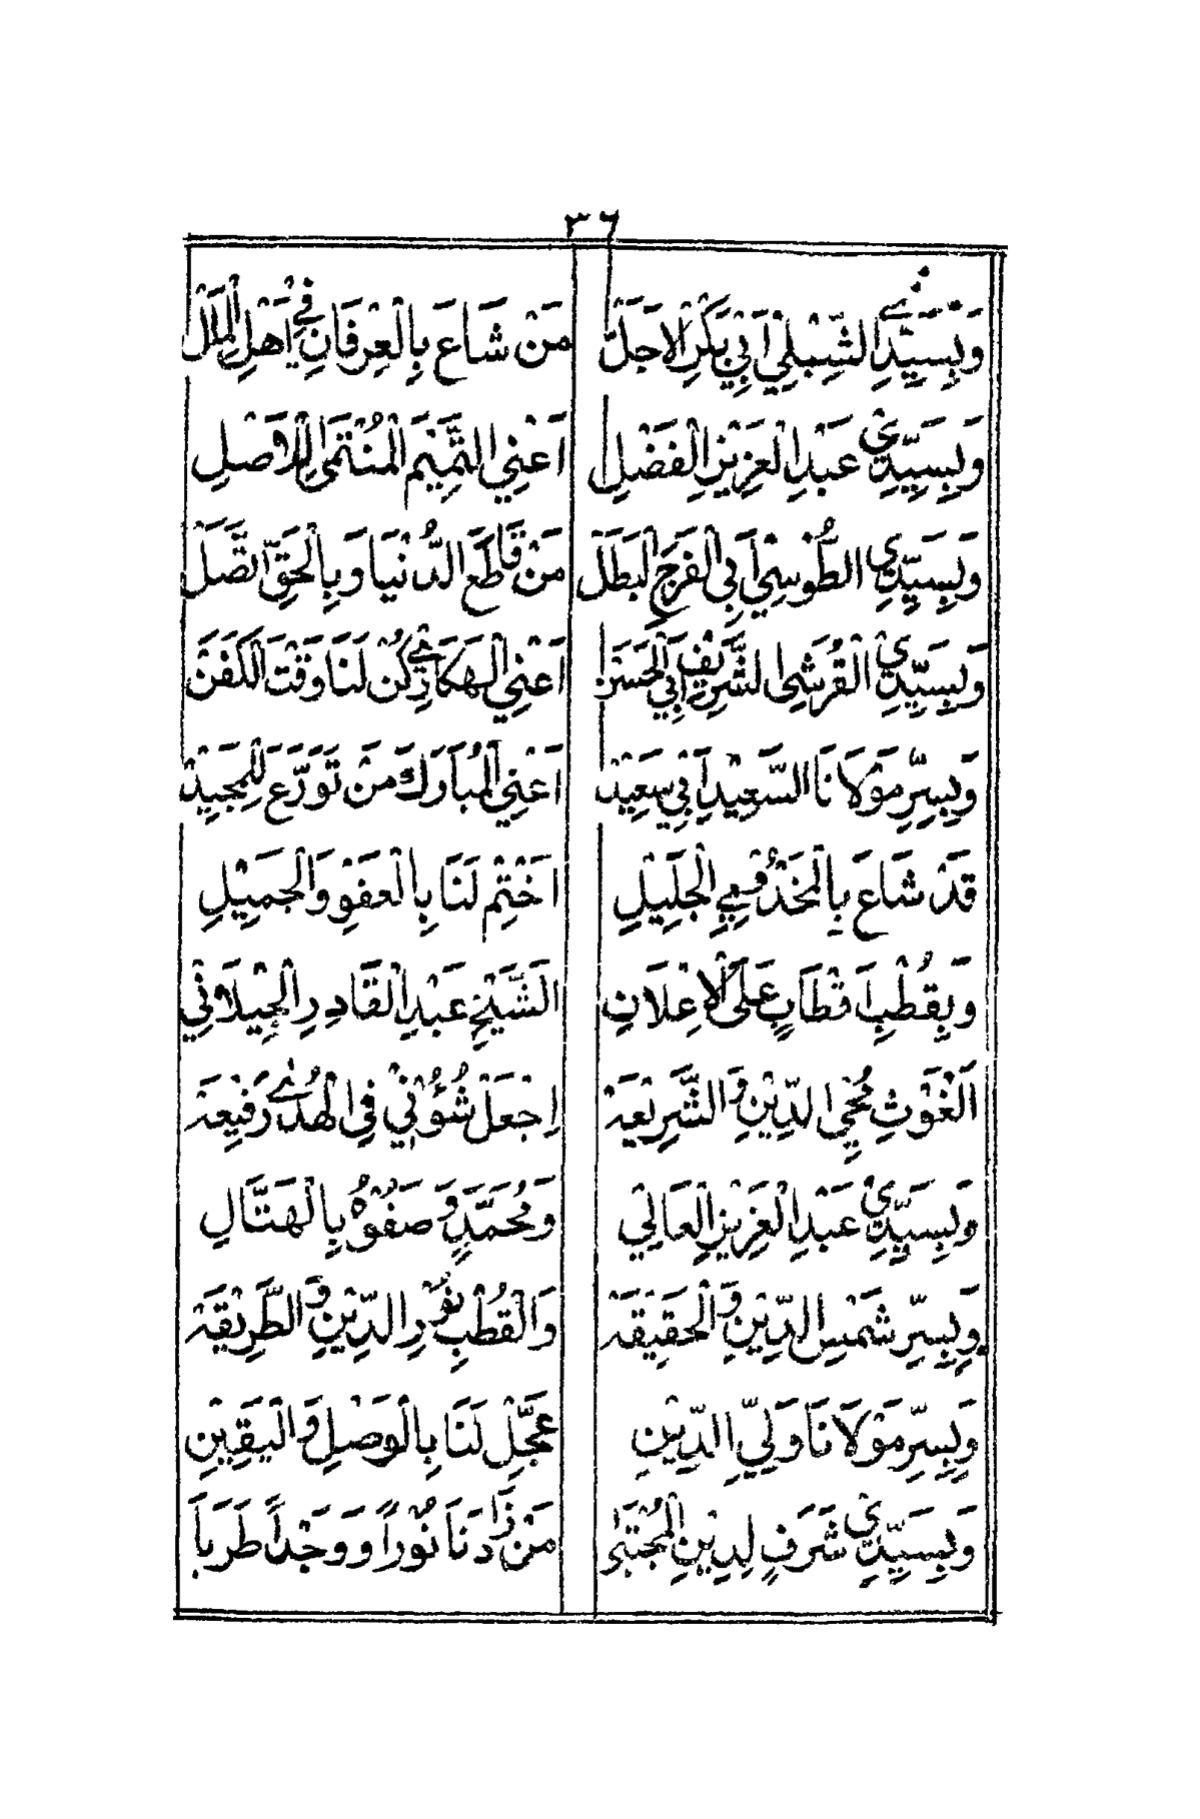 ٣٦
وَبِسَيِّدِي الشِّبْلِيْ اَبِيْ بَكْرِ الْاَجَلّْ مَنْ شَاعَ بِالْعِرْفَانِ فِيْ اَهْلِ الْمِلَلْ
وَبِسَيِّدِيْ عَبْدِ الْعَزِيْزِ الْفَضْلِ اَعْنِي التَّمِيْمَ الْمُنْتَمَى لِلْاَصْلِ
وَبِسَيِّدِيْ الطُّوْسِيْ اَبِى الْفَرَجِ الْبَطَلْ مَنْ قَاطَعَ الدُّنْيَا وَبِالْحَقِّ اتَّصَلْ
وَبِسَيِّدِيْ الْقُرَشِى الشَّرِيْفِ اَبِي الْحَسَنْ اَعْنِي الْهَكَارِيْ كُنْ لَنَا وَقْتَ الْكَفَنْ
وَبِسِرِّ مَوْلَانَا السَّعِيْدِ اَبِيْ سَعِيْدْ اَعْنِي الْمُبَارَكَ مَنْ تَوَرَّعَ لِلْمَجِيْدْ
قَدْ شَاعَ بِالْمَخْذُوْمِيِ الْجَلِيْلِ اخْتِمْ لَنَا بِالْعَفْوِ وَالْجَمِيْلِ
وَبِقُطْبِ اَقْطَابٍ عَلَى الْاِعْلَانِ الشَّيْخِ عَبْدِ الْقَادِرِ الْجِيْلَانِيْ
اَلْغَوْثِ مُحْيِ الدِّيْنِ وَالشَّرِيْعَهْ اِجْعَلْ شُؤُنِيْ فِى الْهُدٰى رَفِيْعَهْ
وَبِسَيِّدِيْ عَبْدِ الْعَزِيْزِ الْعَالِيْ وَمُحَمَّدٍ وَصَفُوْهُ بِالْهَتَّالِ
وَبِسِرِّ شَمْسِ الدِّيْنِ وَالْحَقِيْقَهْ وَالْقُطْبِ نُوْرِ الدِّيْنِ وَالطَّرِيْقَهْ
وَبِسِرِّ مَوْلَانَا وَلِيِّ الدِّيْنِ عَجِّلْ لَنَا بِالْوَصْلِ وَالْيَقِيْنِ
وَبِسَيِّدِيْ شَرَفٍ لِدِيْنِ الْمُجْتَبٰى مَنْ زَادَنَا نُوْرًا وَوَجْدًا طَرَبَا